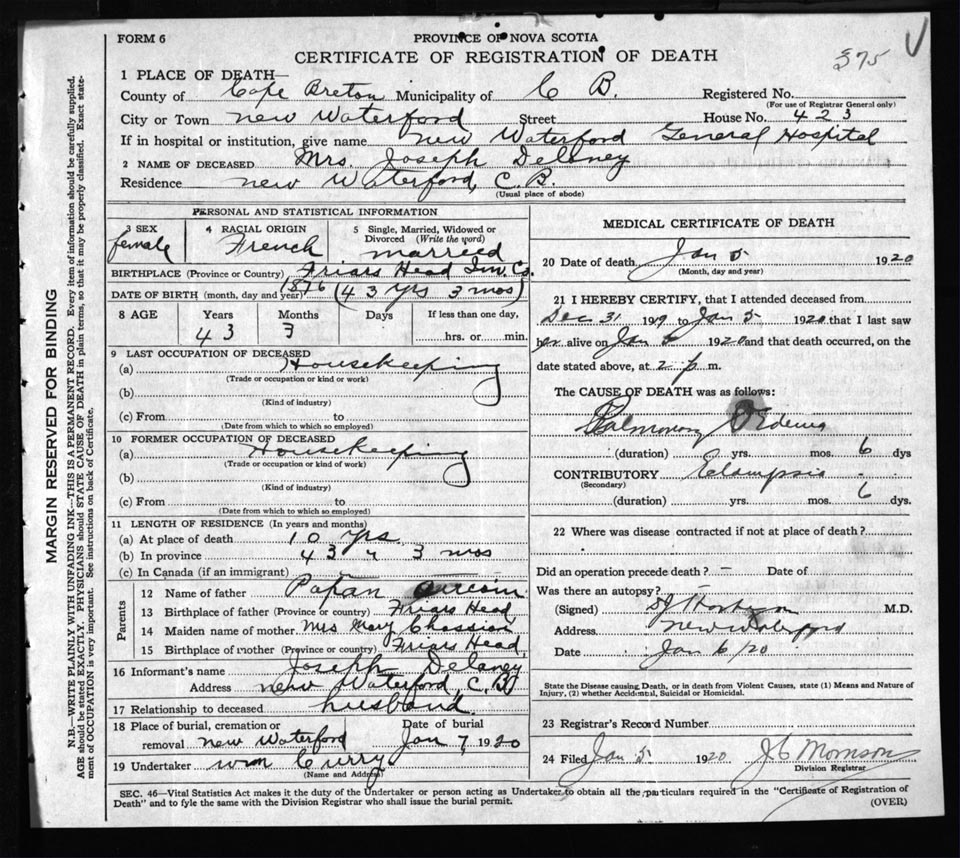 FORM 6
PROVINCE OF NOVA SCOTIA
CERTIFICATE OF REGISTRATION OF DEATH
375
1 PLACE OF DEATH—
County of Cape Breton Municipality of C B. Registered No.
(For use of Registrar General only)
City or Town New Waterford Street House No. 423
If in hospital or institution, give name New Waterford General Hospital
2 NAME OF DECEASED Mrs. Joseph Delaney
Residence New Waterford, C.B.
(Usual place of abode)
PERSONAL AND STATISTICAL INFORMATION
3 SEX female
4 RACIAL ORIGIN French
5 Single, Married, Widowed or Divorced (Write the word) married
BIRTHPLACE (Province or Country) Friars Head Inv. Co.
DATE OF BIRTH (month, day and year) 1876 (43 yrs 3 mos)
8 AGE Years Months Days If less than one day,
43 3 hrs. or min.
9 LAST OCCUPATION OF DECEASED
(a) Housekeeping
(Trade or occupation or kind or work)
(b)
(Kind of industry)
(c) From to
(Date from which to which so employed)
10 FORMER OCCUPATION OF DECEASED
(a) Housekeeping
(Trade or occupation or kind of work)
(b)
(Kind of industry)
(c) From to
(Date from which to which so employed)
11 LENGTH OF RESIDENCE (In years and months)
(a) At place of death 10 yrs
(b) In province 43 " 3 mos
(c) In Canada (if an immigrant)
Parents
12 Name of father Papan
13 Birthplace of father (Province or country) Friars Head
14 Maiden name of mother Mrs Mary Chassion
15 Birthplace of mother (Province or country) Friars Head
16 Informant's name Joseph Delaney
Address New Waterford, C.B.
17 Relationship to deceased husband
18 Place of burial, cremation or Date of burial
removal New Waterford Jan 7 1920
19 Undertaker Wm Curry
(Name and Address)
MEDICAL CERTIFICATE OF DEATH
20 Date of death Jan 5 1920
(Month, day and year)
21 I HEREBY CERTIFY, that I attended deceased from
Dec 31 1919 to Jan 5 1920 that I last saw
her alive on Jan 1920 and that death occurred, on the
date stated above, at 2 p m.
The CAUSE OF DEATH was as follows:
Pulmonary Oedema
(duration) yrs. mos. 6 dys
CONTRIBUTORY Eclampsia
(Secondary)
(duration) yrs. mos. 6 dys.
22 Where was disease contracted if not at place of death?
Did an operation precede death? – Date of
Was there an autopsy?
(Signed) M.D.
Address New Waterford
Date Jan 6/20
State the Disease causing Death, or in death from Violent Causes, state (1) Means and Nature of
Injury, (2) whether Accidental, Suicidal or Homicidal.
23 Registrar's Record Number
24 Filed Jan 5 1920 J C Morrison
Division Registrar
SEC. 46—Vital Statistics Act makes it the duty of the Undertaker or person acting as Undertaker to obtain all the particulars required in the "Certificate of Registration of
Death" and to fyle the same with the Division Registrar who shall issue the burial permit.
(OVER)
MARGIN RESERVED FOR BINDING
N.B.—WRITE PLAINLY WITH UNFADING INK—THIS IS A PERMANENT RECORD. Every item of information should be carefully supplied.
AGE should be stated EXACTLY. PHYSICIANS should STATE CAUSE OF DEATH in plain terms, so that it may be properly classified. Exact state-
ment of OCCUPATION is very important. See instructions on back of Certificate.